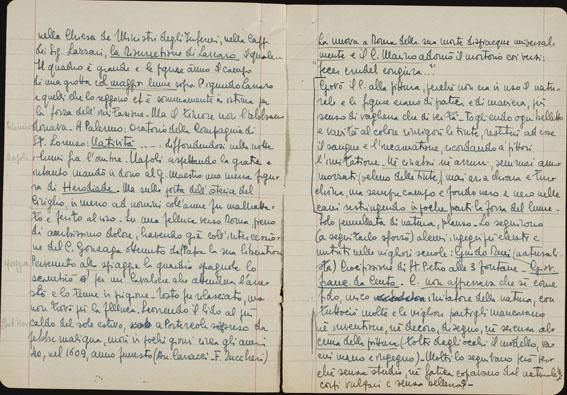 nella Chiesa de Ministri degli Infermi, nella Capp.
di Sig. Lazzari, la Risurrezione di Lazzaro, il quale...
Il quadro è grande e le figure ànno il campo
di una grotta col maggior lume sopra l'ignudo Lazzaro
e quelli che lo reggono et è sommamente in istima per
la forza dell'imitazione. Ma il timore non l'abban
donava. A Palermo. Oratorio della Compagnia di
St. Lorenzo: Natività ..... diffondendosi nella notte
i lumi fra l'ombre. Napoli aspettando la gratia e
intanto mandò in dono al G. Maestro una mezza figura
di Herodiade. Ma sulla porta dell'osteria del
Ciriglio, in mezzo ad uomini coll'arme fu maltratta
to e ferito al viso. In una felluca verso Roma, pieno
di amarissimo dolor, havendo già coll'intercessio
ne del C. Gonzaga ottenuto dal Papa la sua liberatione
Pervenuto alla spiaggia la guardia spagnola lo
scambiò per un Cavaliere che attendeva l'arre
stò e lo tenne in prigione. Tosto fu rilasciato, ma
non trovò più la felluca. Scorrendo il lido al più
caldo del sole estivo, a Portercole sorpreso da
febbre maligna, morì in pochi giorni circa gli anni
do, nel 1609, anno funesto (An. Caracci - F. Zuccheri)
La nuova a Roma della sua morte dispiacque universal
mente e il C. Marino adornò il mortorio coi versi:
"fecer crudel congiura..."
Giovò il C. alla pittura, perché non era in uso il natu
rale e le figure erano di pratica e di maniera, più
senso di vaghezza che di verità. Togliendo ogni belletto
e vanità al colore rinvigorì le tinte, restituì ad esse
il sangue e l'incarnatione, ricordando a' pittori
l'imitatione. Né cinabri né azzurri, semmai ammorzati
(veleno delle tinte) mai aria chiara e turchina,
ma sempre campo e fondo nero e nero nelle
carni restringendo in poche parti la forza del lume.
Solo premulatu di natura, plauso. Lo seguirono
(a seguitarlo sforzò) alcuni ingegni più elevati e
nutriti nelle migliori scuole: Guido Reni (naturali
sta) Crocifissione di St. Pietro alle 3 fontane - Giov.
franc. da Cento. C. non apprezzava che se come
fido, unico imitatore della natura, con
tuttociò molte e le migliori parti gli mancavano
né inventione, né decoro, disegno, né scienza alcuna
della pittura (tolto dagli occhi il modello, va
cui mano e ingegno). Molti lo seguivano però per
ché senza studio, né fatica copiavano dal naturale
corpi vulgari e senza bellezza -